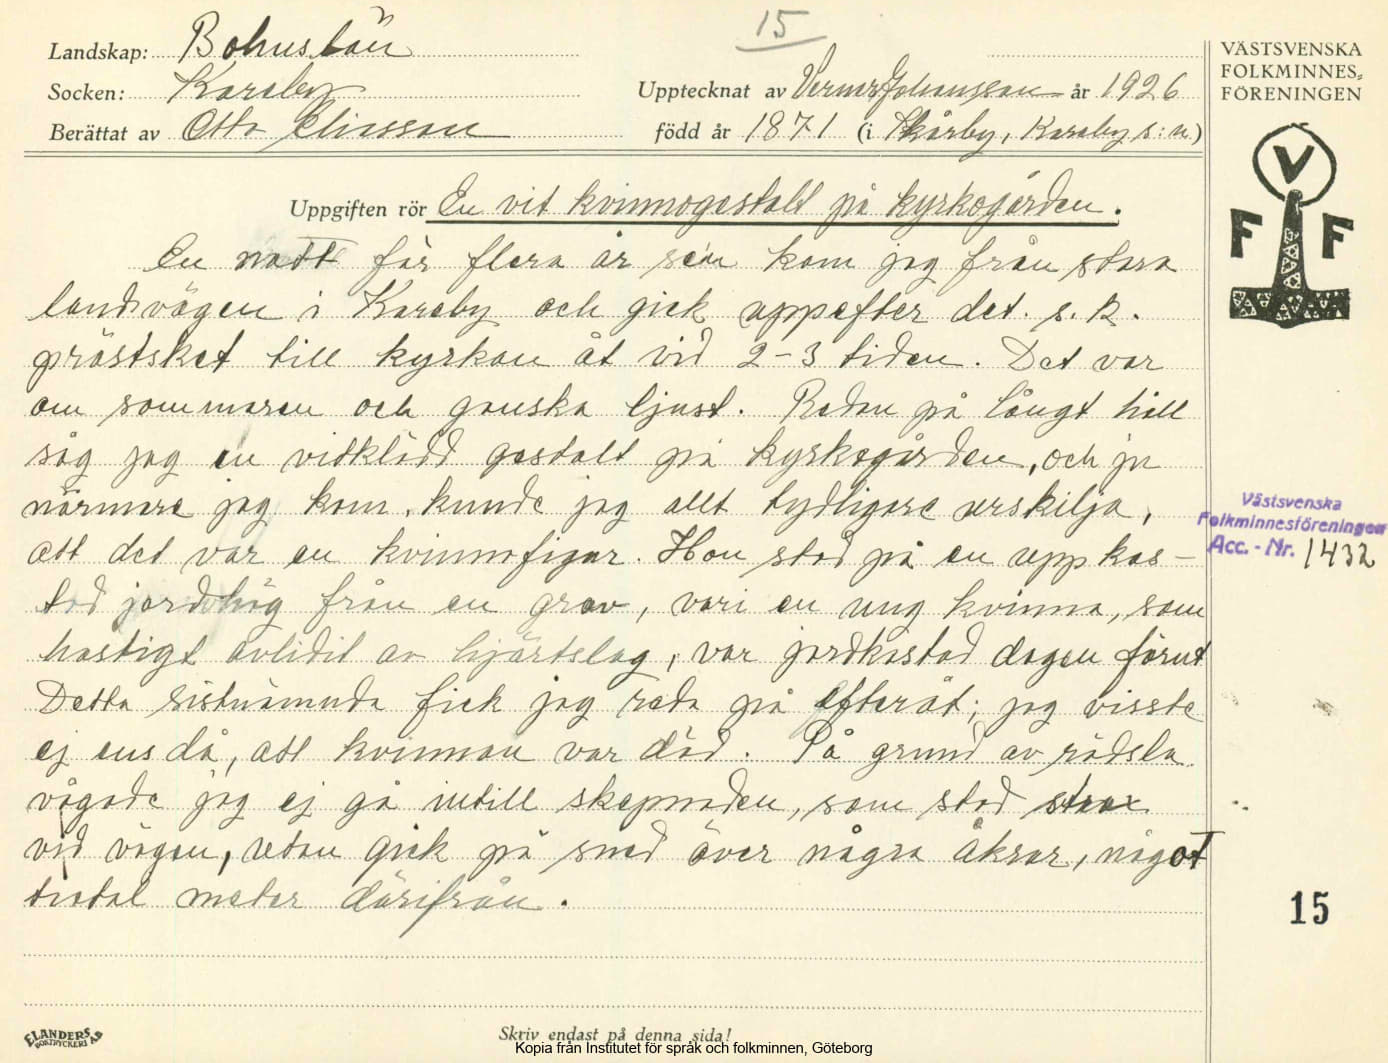 15
Landskap: Bohuslän
Socken: Kareby
Upptecknat av Verner Johansson år 1926
Berättat av Otto Elisson
född år 1871 (i Skårby, Kareby s:n)
VÄSTSVENSKA
FOLKMINNES-
FÖRENINGEN
V
F F
Uppgiften rör En vit kvinnogestalt på kyrkogården.
En natt för flera år sen kom jag från stora
landsvägen i Kareby och gick uppefter det s.k.
prästsket till kyrkan åt vid 2-3 tiden. Det var
om sommaren och ganska ljust. Redan på långt håll
såg jag en vitklädd gestalt på kyrkogården, och ju
närmare jag kom, kunde jag allt tydligare urskilja,
att det var en kvinnofigur. Hon stod på en uppkas-
tad jordhög från en grav, vari en ung kvinna, som
hastigt avlidit av hjärtslag, var jordkastad dagen förut
Detta sistnämnda fick jag reda på efteråt; jag visste
ej ens då, att kvinnan var död. På grund av rädsla
vågade jag ej gå intill skepnaden, som stod strax
vid vägen, utan gick på sned över några åkrar, något
tiotal meter därifrån.
Västsvenska
Folkminnesföreningen
Acc. - Nr. 1432
15
ELANDERS
BOKTRYCKERI A.B
Skriv endast på denna sida!
Kopia från Institutet för språk och folkminnen, Göteborg